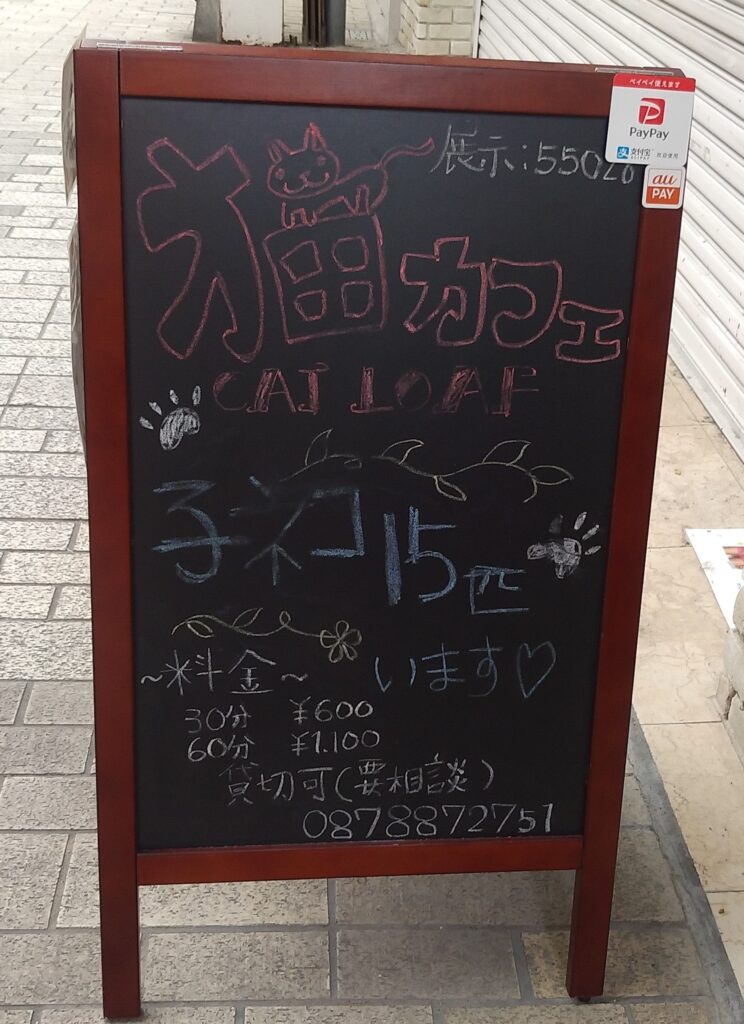 ペイペイ使えます
PayPay
支付宝
au
PAY
展示:55026
猫カフェ
CAT LOAF
子ネコ15匹
います♡
~料金~
30分 ¥600
60分 ¥1.100
貸切可(要相談)
0878872751